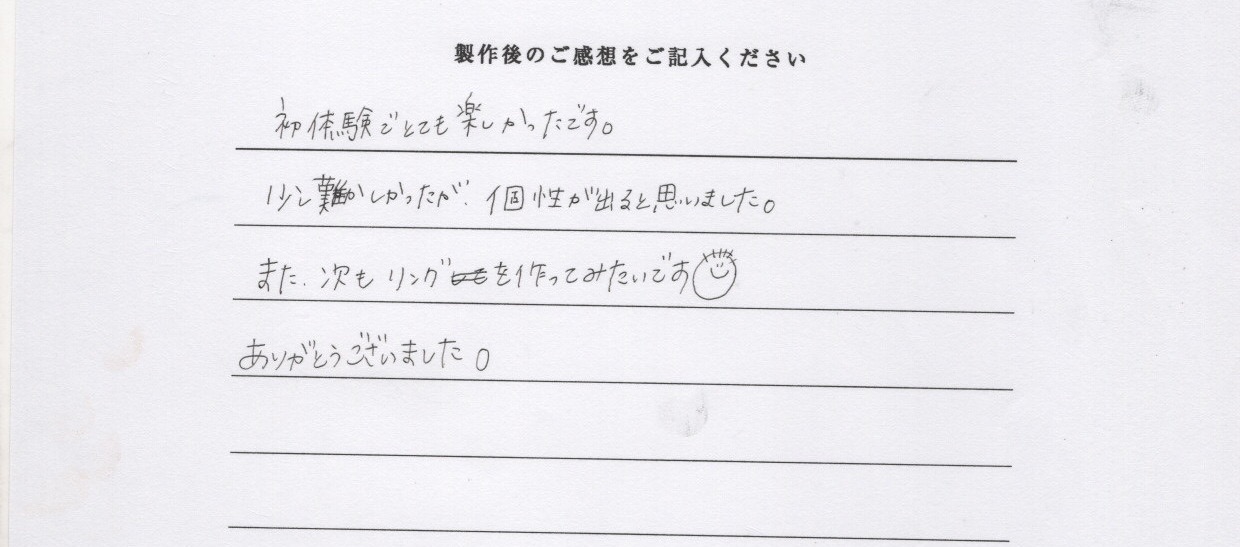 製作後のご感想をご記入ください
初体験でとても楽しかったです。
少し難かしかったが、個性が出ると思いました。
また、次もリングを作ってみたいです
ありがとうございました。